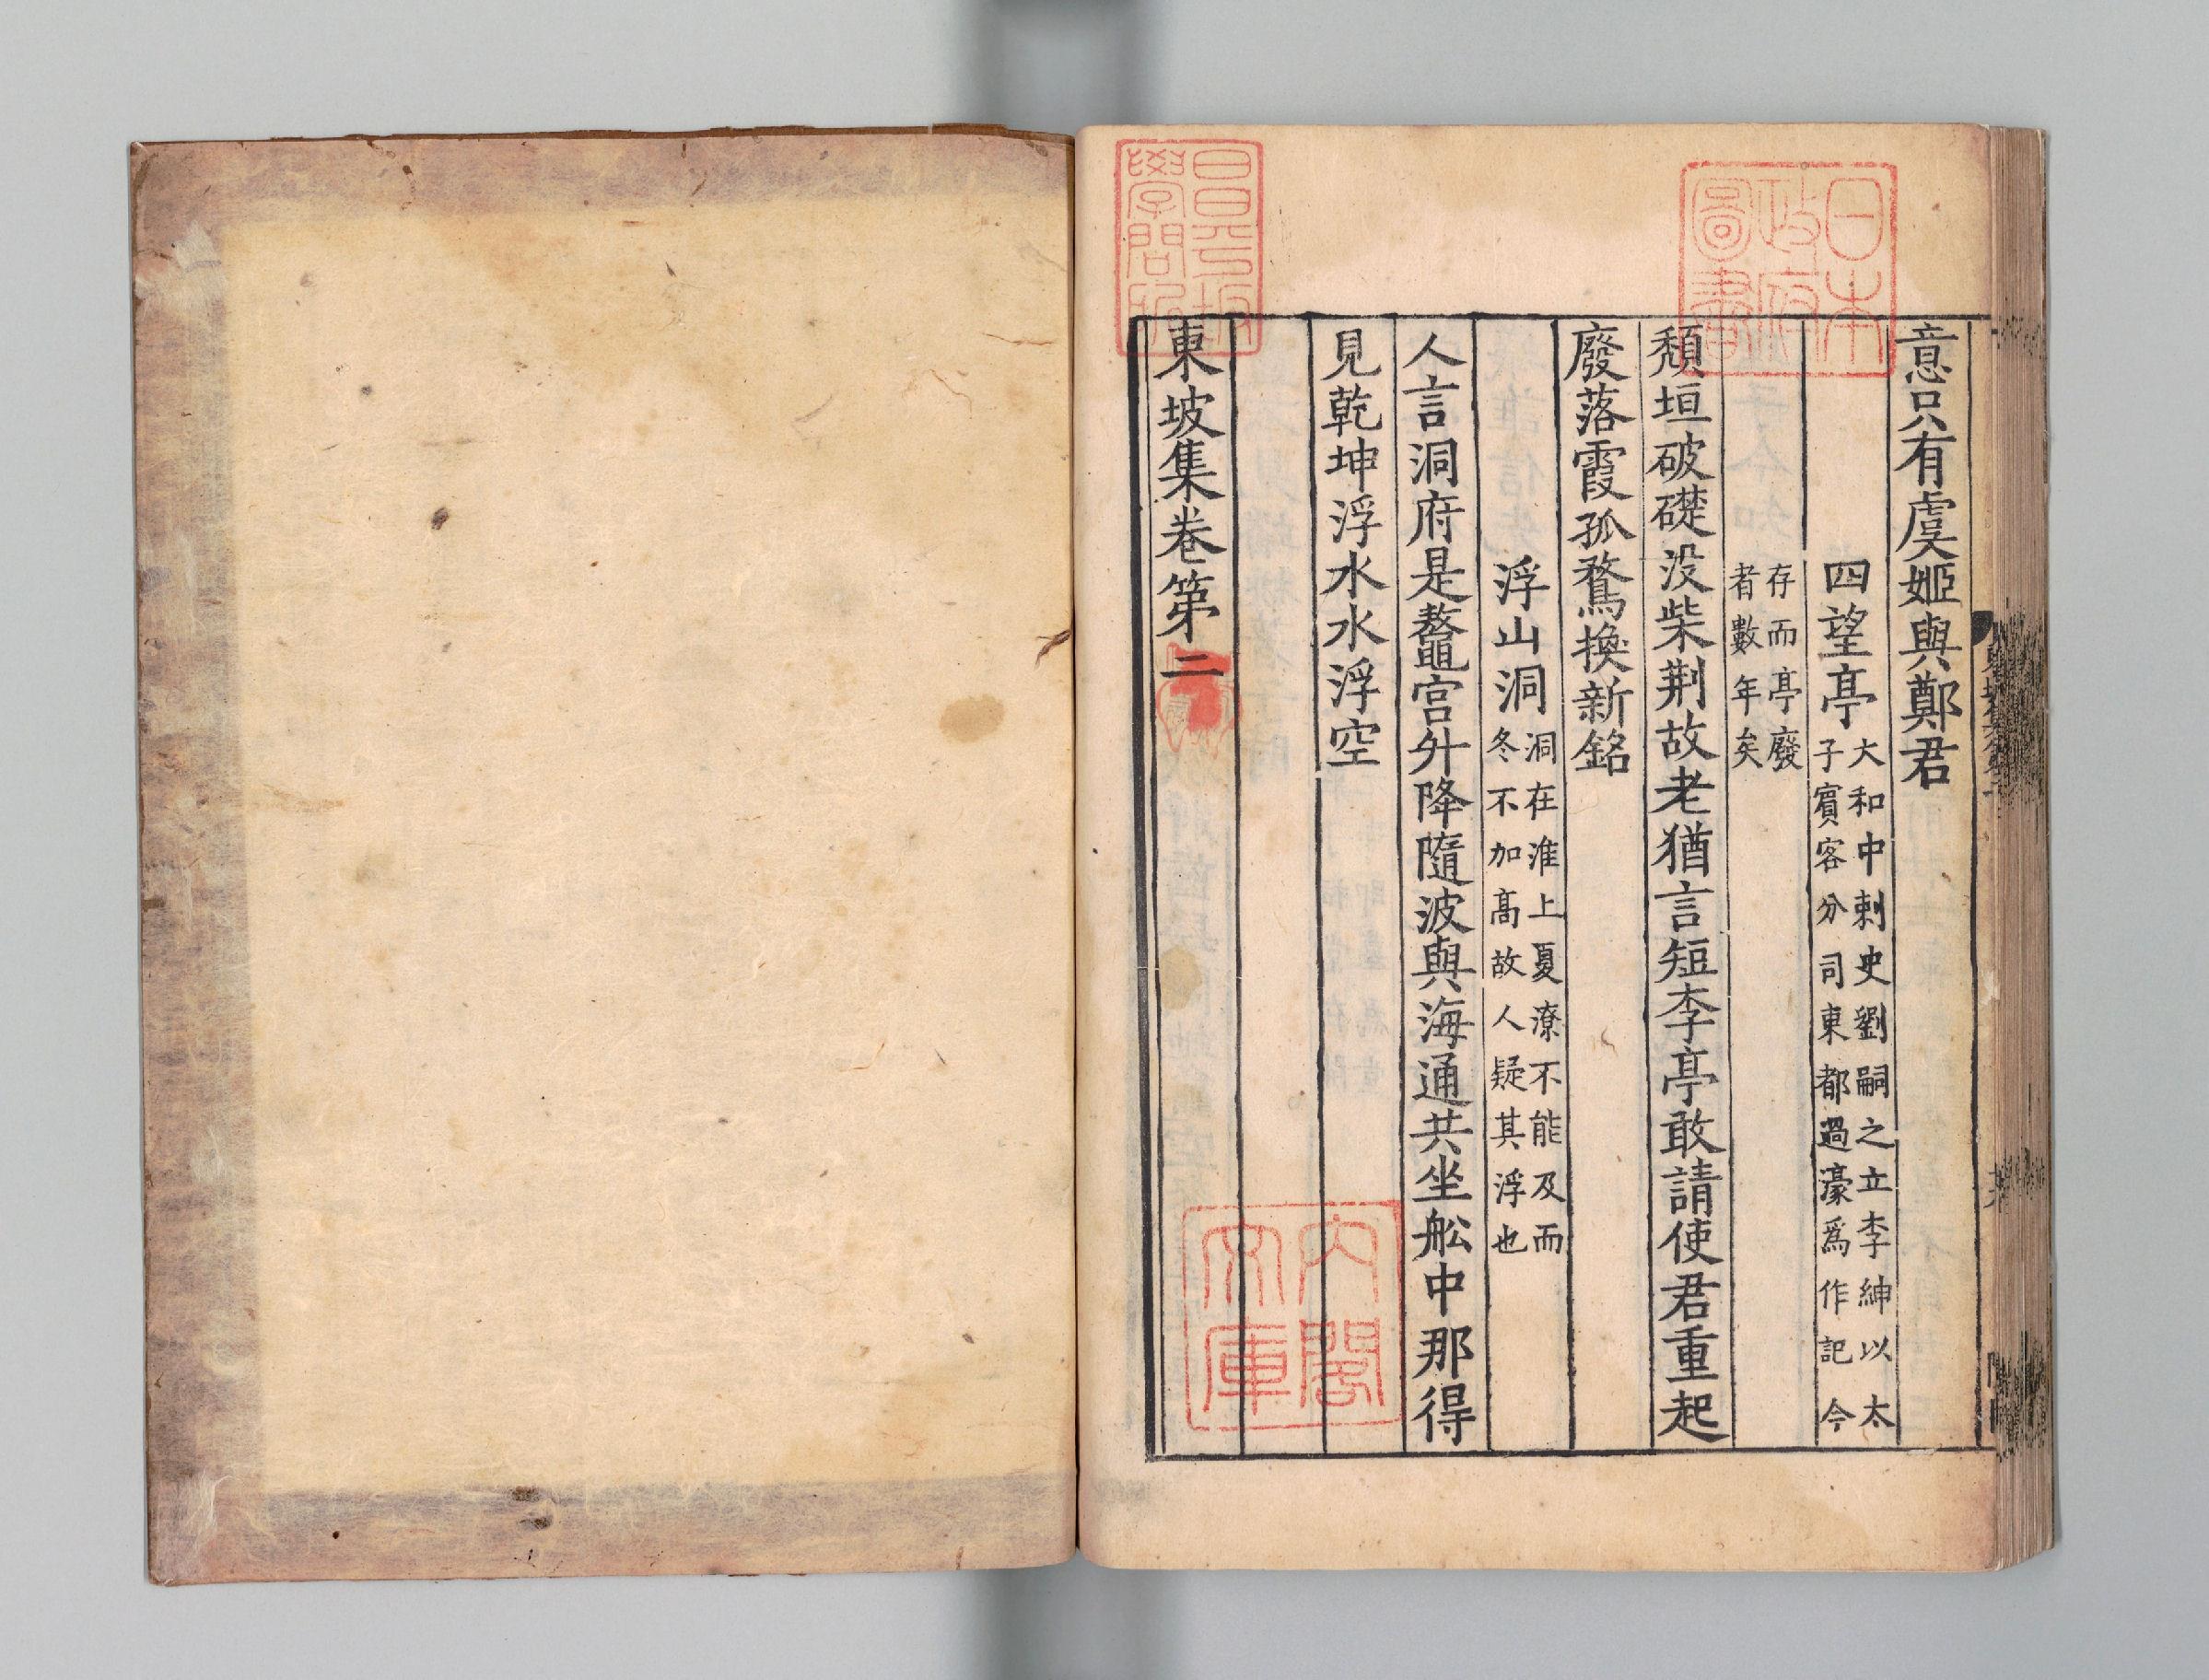 意只有虞姬與鄭君
四望亭
大和中刺史劉嗣之立李紳以太
子賓客分司東都過濠爲作記今
存而亭廢
者數年矣
頹垣破礎没柴荆故老猶言短李亭敢請使君重起
廢落霞孤鶩換新銘
浮山洞
洞在淮上夏潦不能及而
冬不加高故人疑其浮也
人言洞府是鼇宫升降隨波與海通共坐舩中那得
見乾坤浮水水浮空
東坡集卷第二
日本
政府
圖書
昌平坂
學問所
內閣
文庫